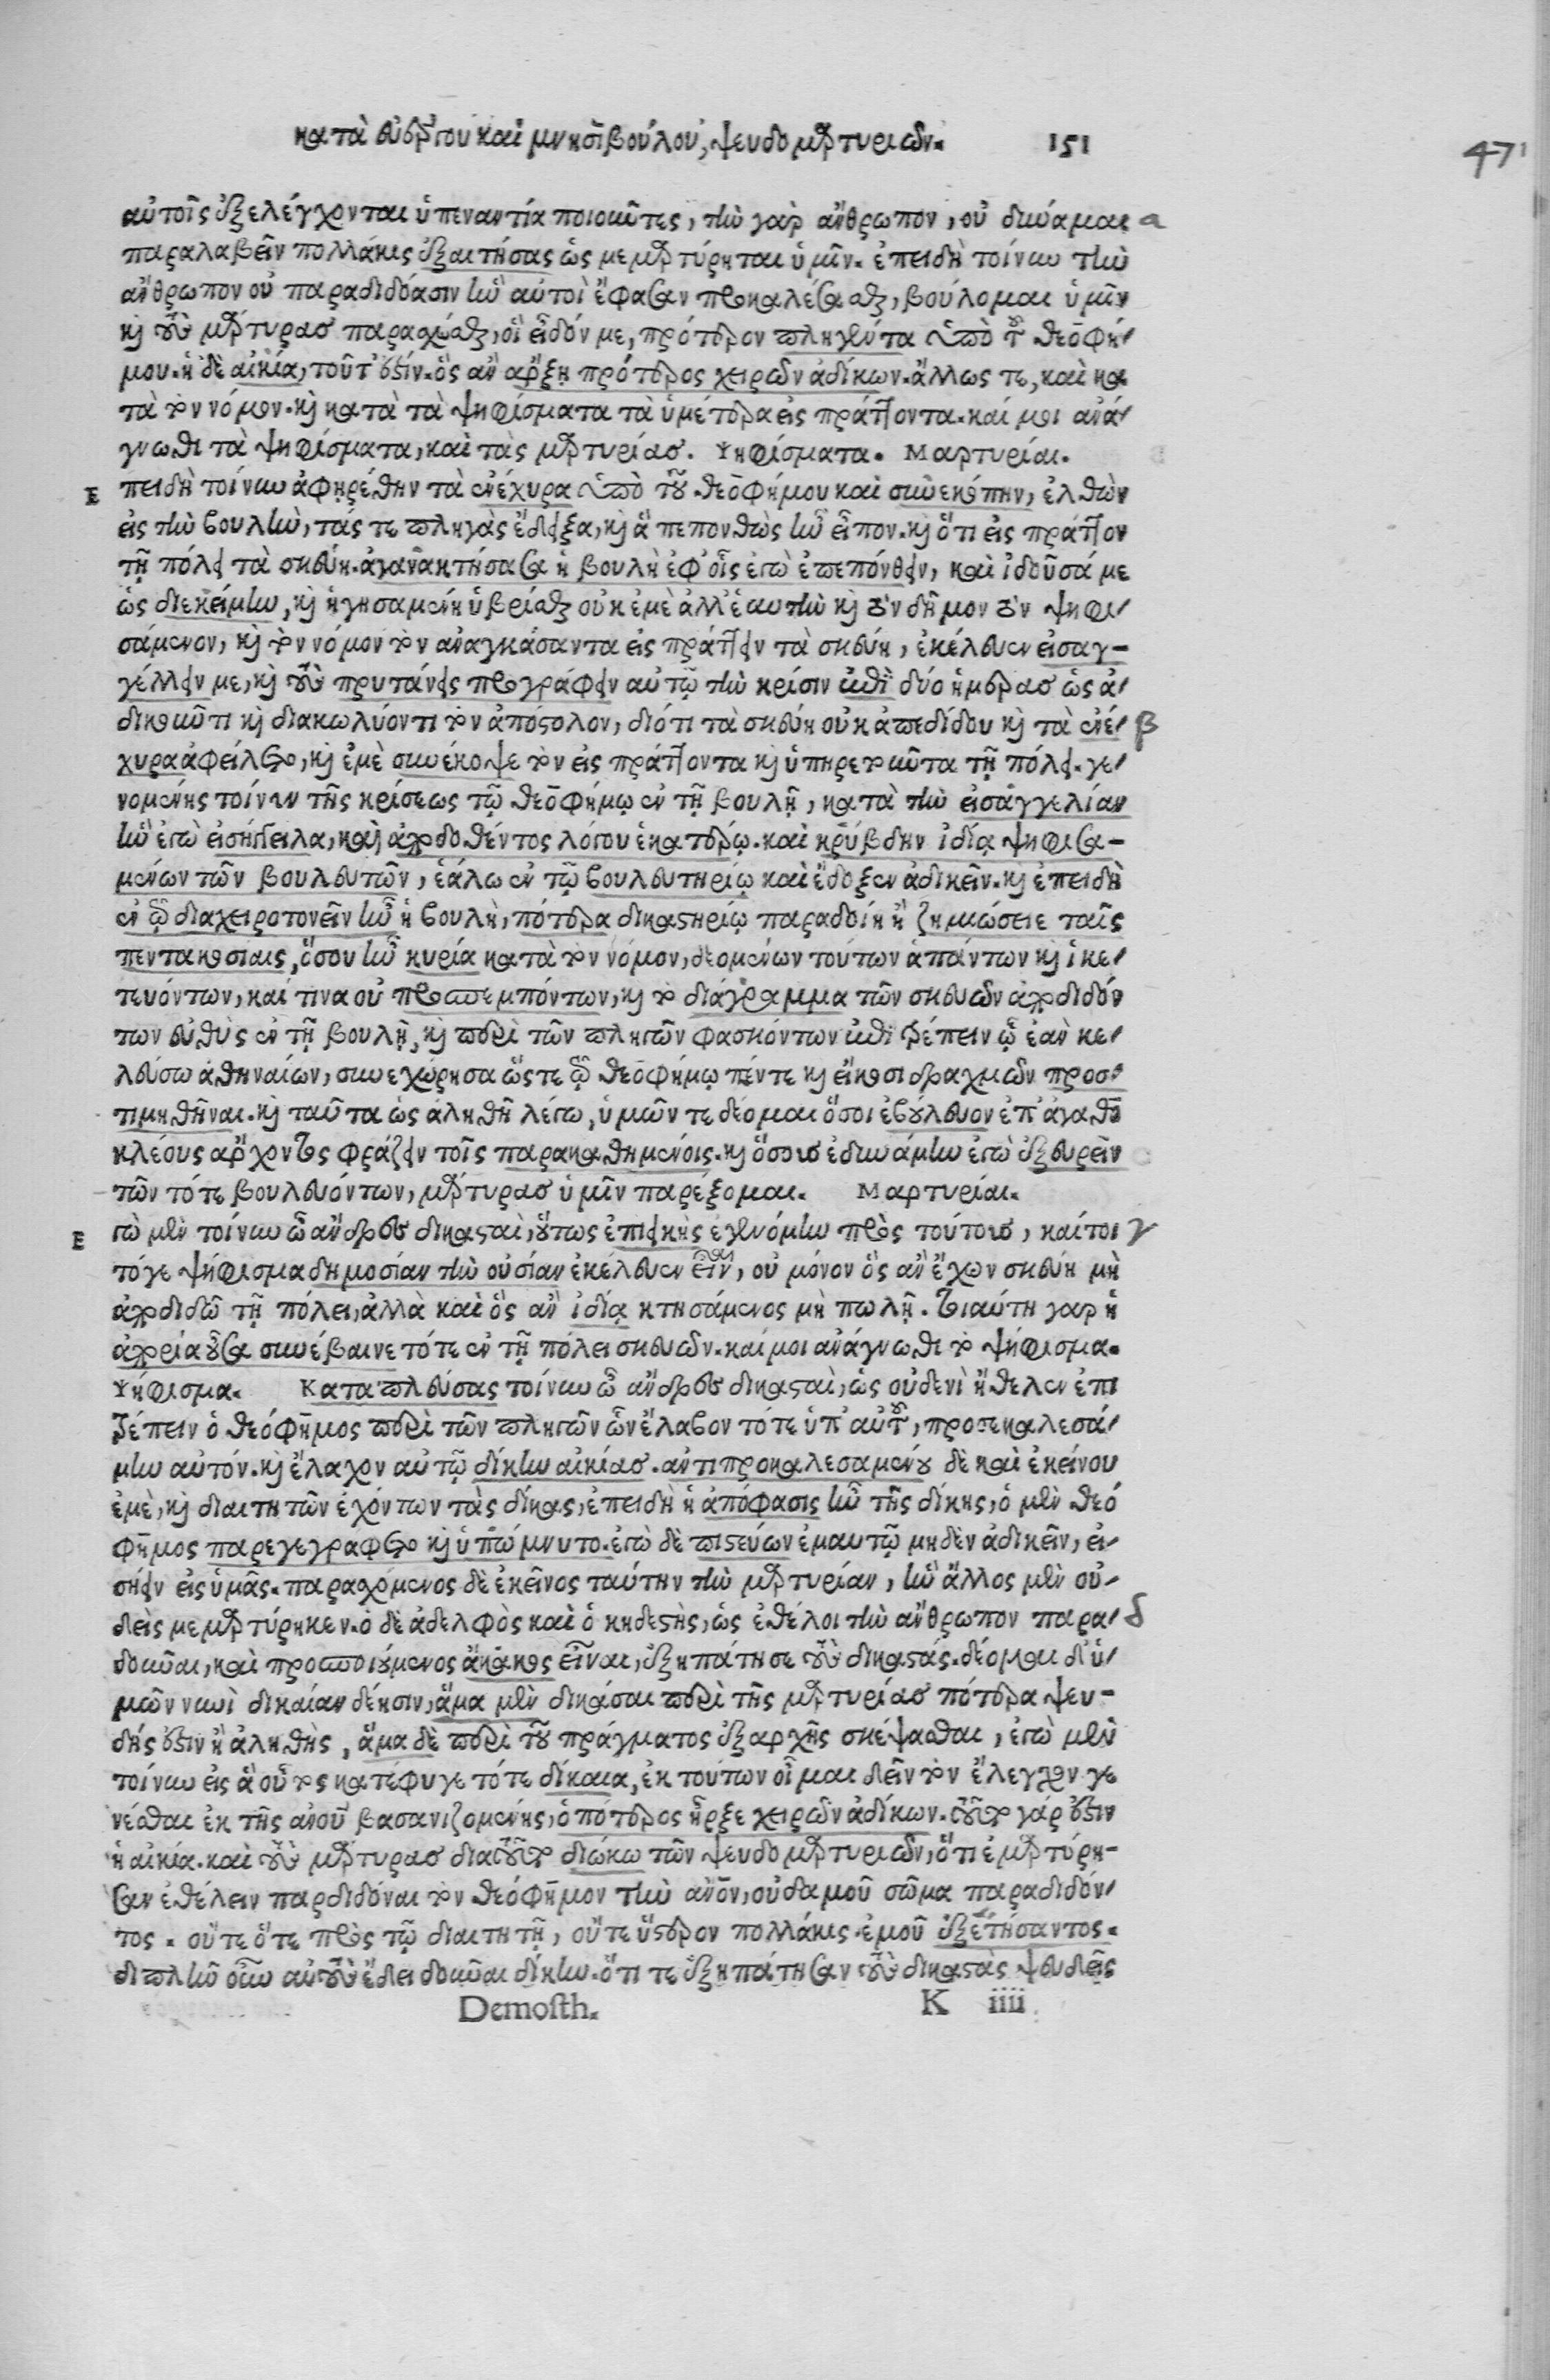 κατὰ εὐέργου καὶ μνησιβούλου, ψευδομαρτυριῶν. 151
471
αὐτοῖς ἐξελέγχονται ὑπεναντία ποιοῦντες, τὴν γὰρ ἄνθρωπον, οὐ δύναμαι a
παραλαβεῖν πολλάκις ἐξαιτήσας ὡς μεμαρτύρηται ὑμῖν. ἐπειδὴ τοίνυν τὴν
ἄνθρωπον οὐ παραδιδόασιν ἣν αὐτοὶ ἔφασαν προκαλέσασθαι, βούλομαι ὑμῖν
καὶ τοὺς μάρτυρας παρασχέσθαι, οἳ εἶδόν με, πρότερον πληγέντα ὑπὸ τοῦ θεοφή-
μου. ἡ δὲ αἰκία, τοῦτ' ἔστιν. ὃς ἂν ἄρξῃ πρότερος χειρῶν ἀδίκων. ἄλλως τε, καὶ κα
τὰ τὸν νόμον. καὶ κατὰ τὰ ψηφίσματα τὰ ὑμέτερα εἰς πράττοντα. καί μοι ἀνά-
γνωθι τὰ ψηφίσματα, καὶ τὰς μαρτυρίας. Ψηφίσματα. Μαρτυρίαι.
Ε πειδὴ τοίνυν ἀφηρέθην τὰ ἐνέχυρα ὑπὸ τοῦ θεοφήμου καὶ συνεκόπην, ἐλθὼν
εἰς τὴν βουλὴν, τάς τε πληγὰς ἔδειξα, καὶ ἃ πεπονθὼς ἦν εἶπον. καὶ ὅτι εἰς πράττον
τῇ πόλει τὰ σκεύη. ἀγανακτήσασα ἡ βουλὴ ἐφ' οἷς ἐγὼ ἐπεπόνθειν, καὶ ἰδοῦσά με
ὡς διεκείμην, καὶ ἡγησαμένη ὑβρίσθαι οὐκ ἐμὲ ἀλλ' ἑαυτὴν καὶ τὸν δῆμον τὸν ψηφι-
σάμενον, καὶ τὸν νόμον τὸν ἀναγκάσαντα εἰς πράττειν τὰ σκεύη, ἐκέλευεν εἰσαγ-
γέλλειν με, καὶ τοὺς πρυτάνεις προγράφειν αὐτῷ τὴν κρίσιν ἐπὶ δύο ἡμέρας ὡς ἀ-
δικοῦντι καὶ διακωλύοντι τὸν ἀπόστολον, διότι τὰ σκεύη οὐκ ἀπεδίδου καὶ τὰ ἐνέ- β
χυρα ἀφείλετο, καὶ ἐμὲ συνέκοψε τὸν εἰς πράττοντα καὶ ὑπηρετοῦντα τῇ πόλει. γε-
νομένης τοίνυν τῆς κρίσεως τῷ θεοφήμῳ ἐν τῇ βουλῇ, κατὰ τὴν εἰσαγγελίαν
ἣν ἐγὼ εἰσήγγειλα, καὶ ἀποδοθέντος λόγου ἑκατέρῳ. καὶ κρύβδην ἰδίᾳ ψηφισα-
μένων τῶν βουλευτῶν, ἑάλω ἐν τῷ βουλευτηρίῳ καὶ ἔδοξεν ἀδικεῖν. καὶ ἐπειδὴ
ἐν τῷ διαχειροτονεῖν ἦν ἡ βουλὴ, πότερα δικαστηρίῳ παραδοίη ἢ ζημιώσειε ταῖς
πεντακοσίαις, ὅσου ἦν κυρία κατὰ τὸν νόμον, δεομένων τούτων ἁπάντων καὶ ἱκε-
τευόντων, καί τινα οὐ προσπεμπόντων, καὶ τὸ διάγραμμα τῶν σκευῶν ἀποδιδόν
των εὐθὺς ἐν τῇ βουλῇ, καὶ περὶ τῶν πληγῶν φασκόντων ἐπιτρέπειν ᾧ ἐὰν κε-
λεύσω ἀθηναίων, συνεχώρησα ὥστε τῷ θεοφήμῳ πέντε καὶ εἴκοσι δραχμῶν προσ-
τιμηθῆναι. καὶ ταῦτα ὡς ἀληθῆ λέγω, ὑμῶν τε δέομαι ὅσοι ἐβούλευον ἐπ' ἀγαθο
κλέους ἄρχοντος φράζειν τοῖς παρακαθημένοις. καὶ ὅσους ἐδυνάμην ἐγὼ ἐξευρεῖν
τῶν τότε βουλευόντων, μάρτυρας ὑμῖν παρέξομαι. Μαρτυρίαι.
Ε γὼ μὲν τοίνυν ὦ ἄνδρες δικασταὶ, οὕτως ἐπιεικὴς ἐγενόμην πρὸς τούτους, καίτοι γ
τόγε ψήφισμα δημοσίαν τὴν οὐσίαν ἐκέλευεν εἶναι, οὐ μόνον ὃς ἂν ἔχων σκεύη μὴ
ἀποδιδῷ τῇ πόλει, ἀλλὰ καὶ ὃς ἂν ἰδίᾳ κτησάμενος μὴ πωλῇ. τοιαύτη γὰρ ἡ
ἀπορία οὖσα συνέβαινε τότε ἐν τῇ πόλει σκευῶν. καί μοι ἀνάγνωθι τὸ ψήφισμα.
Ψήφισμα. Καταπλεύσας τοίνυν ὦ ἄνδρες δικασταὶ, ὡς οὐδενὶ ἤθελεν ἐπι
τρέπειν ὁ θεόφημος περὶ τῶν πληγῶν ὧν ἔλαβον τότε ὑπ' αὐτοῦ, προσεκαλεσά-
μην αὐτόν. καὶ ἔλαχον αὐτῷ δίκην αἰκίας. ἀντιπροκαλεσαμένου δὲ καὶ ἐκείνου
ἐμὲ, καὶ διαιτητῶν ἐχόντων τὰς δίκας, ἐπειδὴ ἡ ἀπόφασις ἦν τῆς δίκης, ὁ μὲν θεό
φημος παρεγεγραφετο καὶ ὑπώμνυτο. ἐγὼ δὲ πιστεύων ἐμαυτῷ μηδὲν ἀδικεῖν, εἰ-
σῄειν εἰς ὑμᾶς. παρασχόμενος δὲ ἐκεῖνος ταύτην τὴν μαρτυρίαν, ἣν ἄλλος μὲν οὐ-
δεὶς μεμαρτύρηκεν. ὁ δὲ ἀδελφὸς καὶ ὁ κηδεστὴς, ὡς ἐθέλοι τὴν ἄνθρωπον παρα- δ
δοῦναι, καὶ προσποιούμενος ἄκακος εἶναι, ἐξηπάτησε τοὺς δικαστάς. δέομαι δ' ὑ-
μῶν νυνὶ δικαίαν δέησιν, ἅμα μὲν δικάσαι περὶ τῆς μαρτυρίας πότερα ψευ-
δής ἐστιν ἢ ἀληθὴς, ἅμα δὲ περὶ τοῦ πράγματος ἐξ ἀρχῆς σκέψασθαι, ἐγὼ μὲν
τοίνυν εἰς ἃ οὗτος κατέφυγε τότε δίκαια, ἐκ τούτων οἶμαι δεῖν τὸν ἔλεγχον γε
νέσθαι ἐκ τῆς ἀνου βασανιζομένης, ὁπότερος ἦρξε χειρῶν ἀδίκων. τοῦτο γάρ ἐστιν
ἡ αἰκία. καὶ τοὺς μάρτυρας διατοῦτο διώκω τῶν ψευδομαρτυριῶν, ὅτι ἐμαρτύρη-
σαν ἐθέλειν παρδιδόναι τὸν θεόφημον τὴν ἀνον, οὐδαμοῦ σῶμα παραδιδόν-
τος. οὔτε ὅτε πρὸς τῷ διαιτητῇ, οὔτε ὕστερον πολλάκις ἐμοῦ ἐξετήσαντος.
διπλῆν οὖν αὐτοὺς ἔδει δοῦναι δίκην. ὅτι τε ἐξηπάτησαν τοὺς δικαστὰς ψευδεῖς
Demosth. K iiii